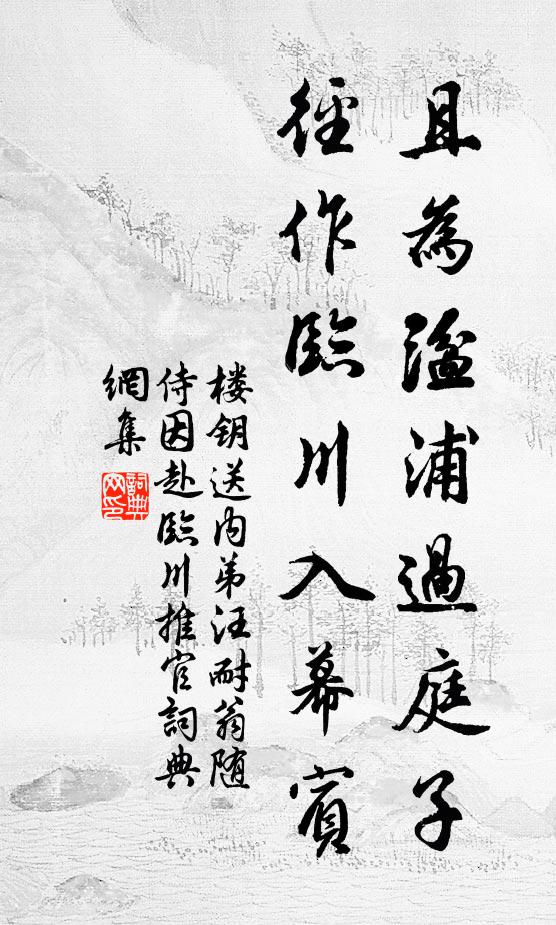 且為湓浦過庭子
徑作臨川入幕賓
楼钥送内弟汪耐翁随
侍因赴臨川推官詞典
網集
詞典
网印